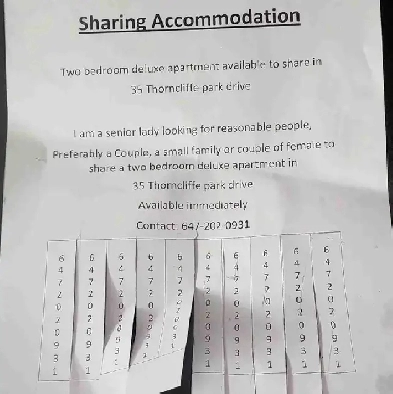 Sharing Accommodation
Two bedroom deluxe apartment available to share in
35 Thorncliffe park drive
I am a senior lady looking for reasonable people,
Preferably a Couple, a small family or couple of female to
share a two bedroom deluxe apartment in
35 Thorncliffe park drive
Available immediately
Contact: 647-202-0931
6472020931
6472020931
6472020931
6472020931
6472020931
6472020931
6472020931
6472020931
6472020931
6472020931